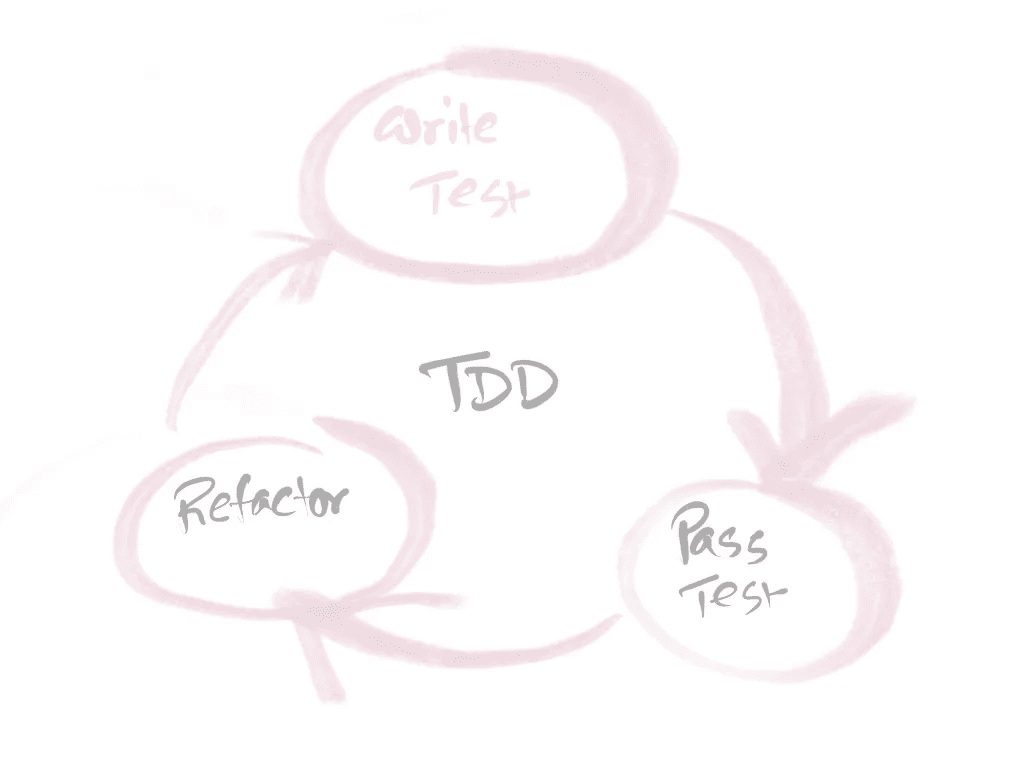 Write
Test
TDD
Refactor
Pass
Test